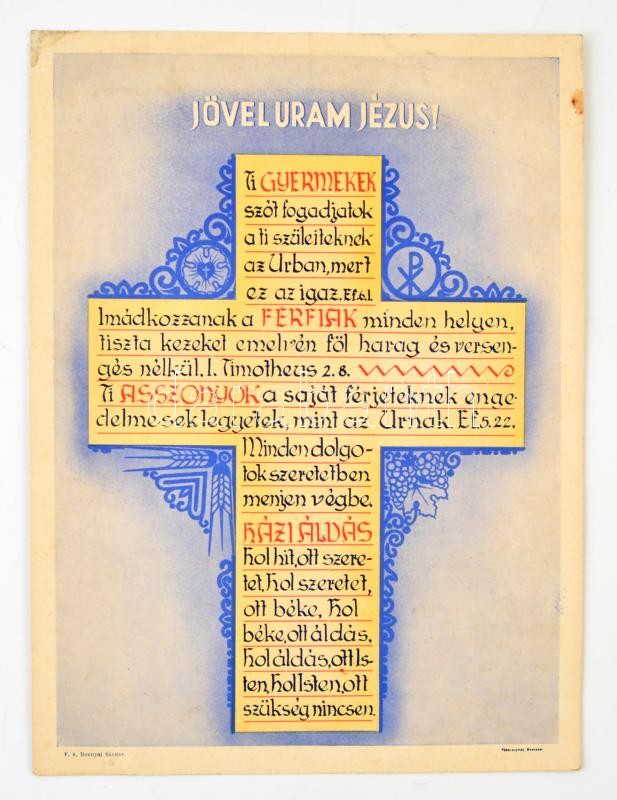 JÖVEL URAM JÉZUS!
Ti GYERMEKEK
szót fogadjatok
a ti szüleiteknek
az Úrban, mert
ez az igaz. Ef. 6.1.
Imádkozzanak a FÉRFIAK minden helyen,
tiszta kezeket emelvén föl harag és versen-
gés nélkül. I. Timotheus 2. 8.
Ti ASSZONYOK a saját férjeteknek enge-
delmesek legyetek, mint az Úrnak Ef. 5. 22.
Minden dolgo-
tok szeretetben
menjen végbe.
HÁZI ÁLDÁS
Hol hit, ott szere-
tet, hol szeretet,
ott béke. Hol
béke, ott áldás,
hol áldás, ott Is-
ten, hol Isten, ott
szükség nincsen.
F. k. Bonnyai Sándor